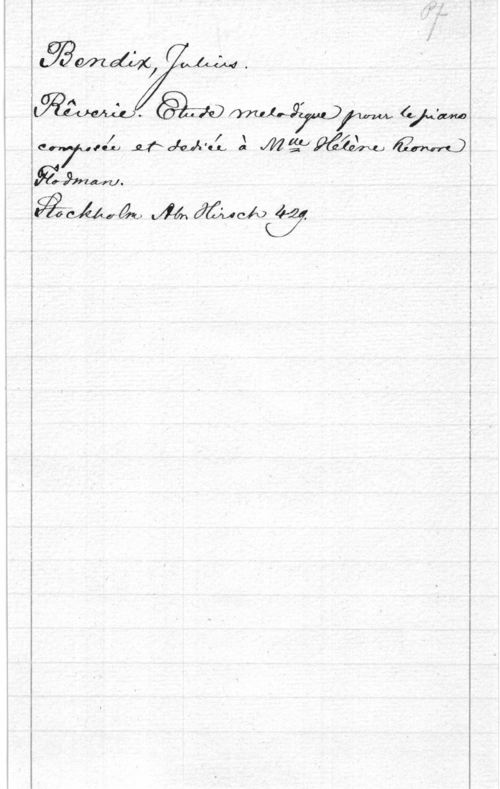 Pf
Bendix, Julius.
Rêverie. Etude melodique pour le piano
composée et dediée à Mlle Hélène Eleonore
Flodman.
Stockholm Abr. Hirsch 429.